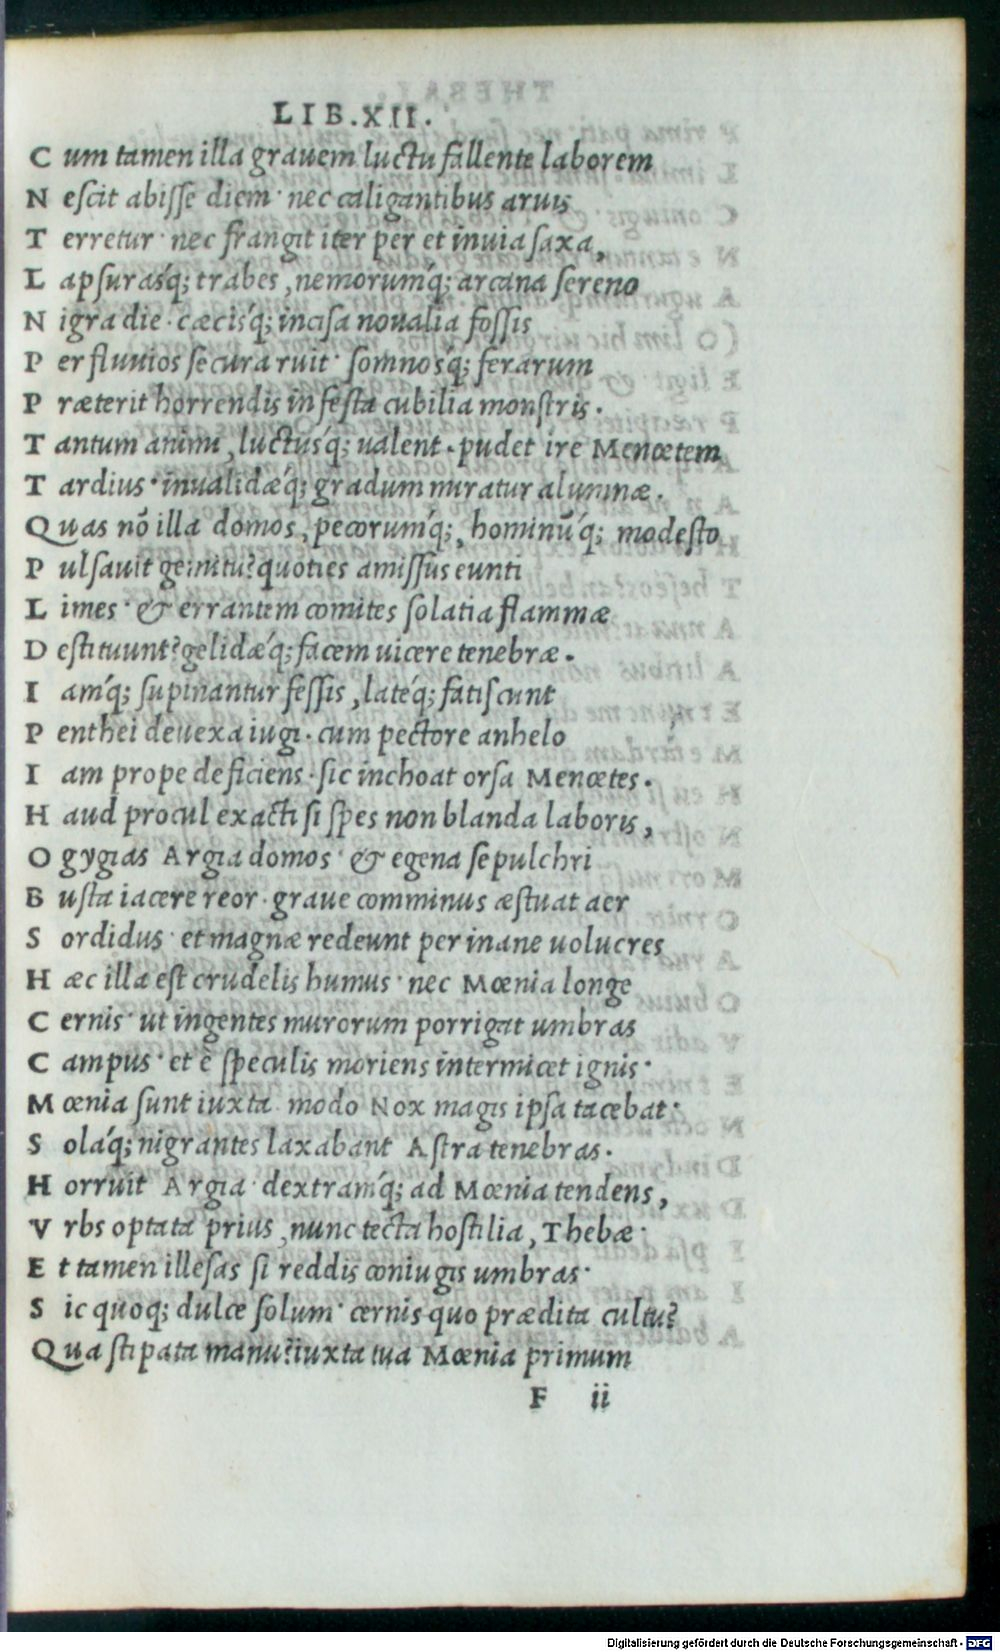 LIB.XII.
C um tamen illa grauem luctu fallente laborem
N escit abisse diem· nec caligantibus aruis
T erretur· nec frangit iter per et inuia saxa,
L apsurasq́; trabes, nemorumq́; arcana sereno
N igra die· cæcisq́; incisa noualia fossis
P er fluuios secura ruit· somnosq́; ferarum
P ræterit horrendis infesta cubilia monstris.
T antum animi, luctusq́; ualent. pudet ire Menœtem
T ardius· inualidæq́; gradum miratur alumnæ.
Q uas nō illa domos, pecorumq́;, hominūq́; modesto
P ulsauit gemitu? quoties amissus eunti
L imes· & errantem comites solatia flammæ
D estituunt? gelidæq́; facem uicere tenebræ.
I amq́; supinantur fessis, lateq́; fatiscunt
P enthei deuexa iugi. cum pectore anhelo
I am prope deficiens· sic inchoat orsa Menœtes.
H aud procul exacti si spes non blanda laboris,
O gygias Argia domos· & egena sepulchri
B usta iacere reor· graue comminus æstuat aer
S ordidus· et magnæ redeunt per inane uolucres
H æc illa est crudelis humus· nec Mœnia longe
C ernis· ut ingentes murorum porrigat umbras
C ampus· et è speculis moriens intermicet ignis·
M œnia sunt iuxta modo Nox magis ipsa tacebat·
S olaq́; nigrantes laxabant Astra tenebras.
H orruit Argia· dextramq́; ad Mœnia tendens,
V rbs optata prius, nunc tecta hostilia, Thebæ·
E t tamen illesas si reddis coniugis umbras·
S ic quoq; dulce solum· cernis quo prædita cultu?
Q ua stipata manu? iuxta tua Mœnia primum
F ii
Digitalisierung gefördert durch die Deutsche Forschungsgemeinschaft - DFG